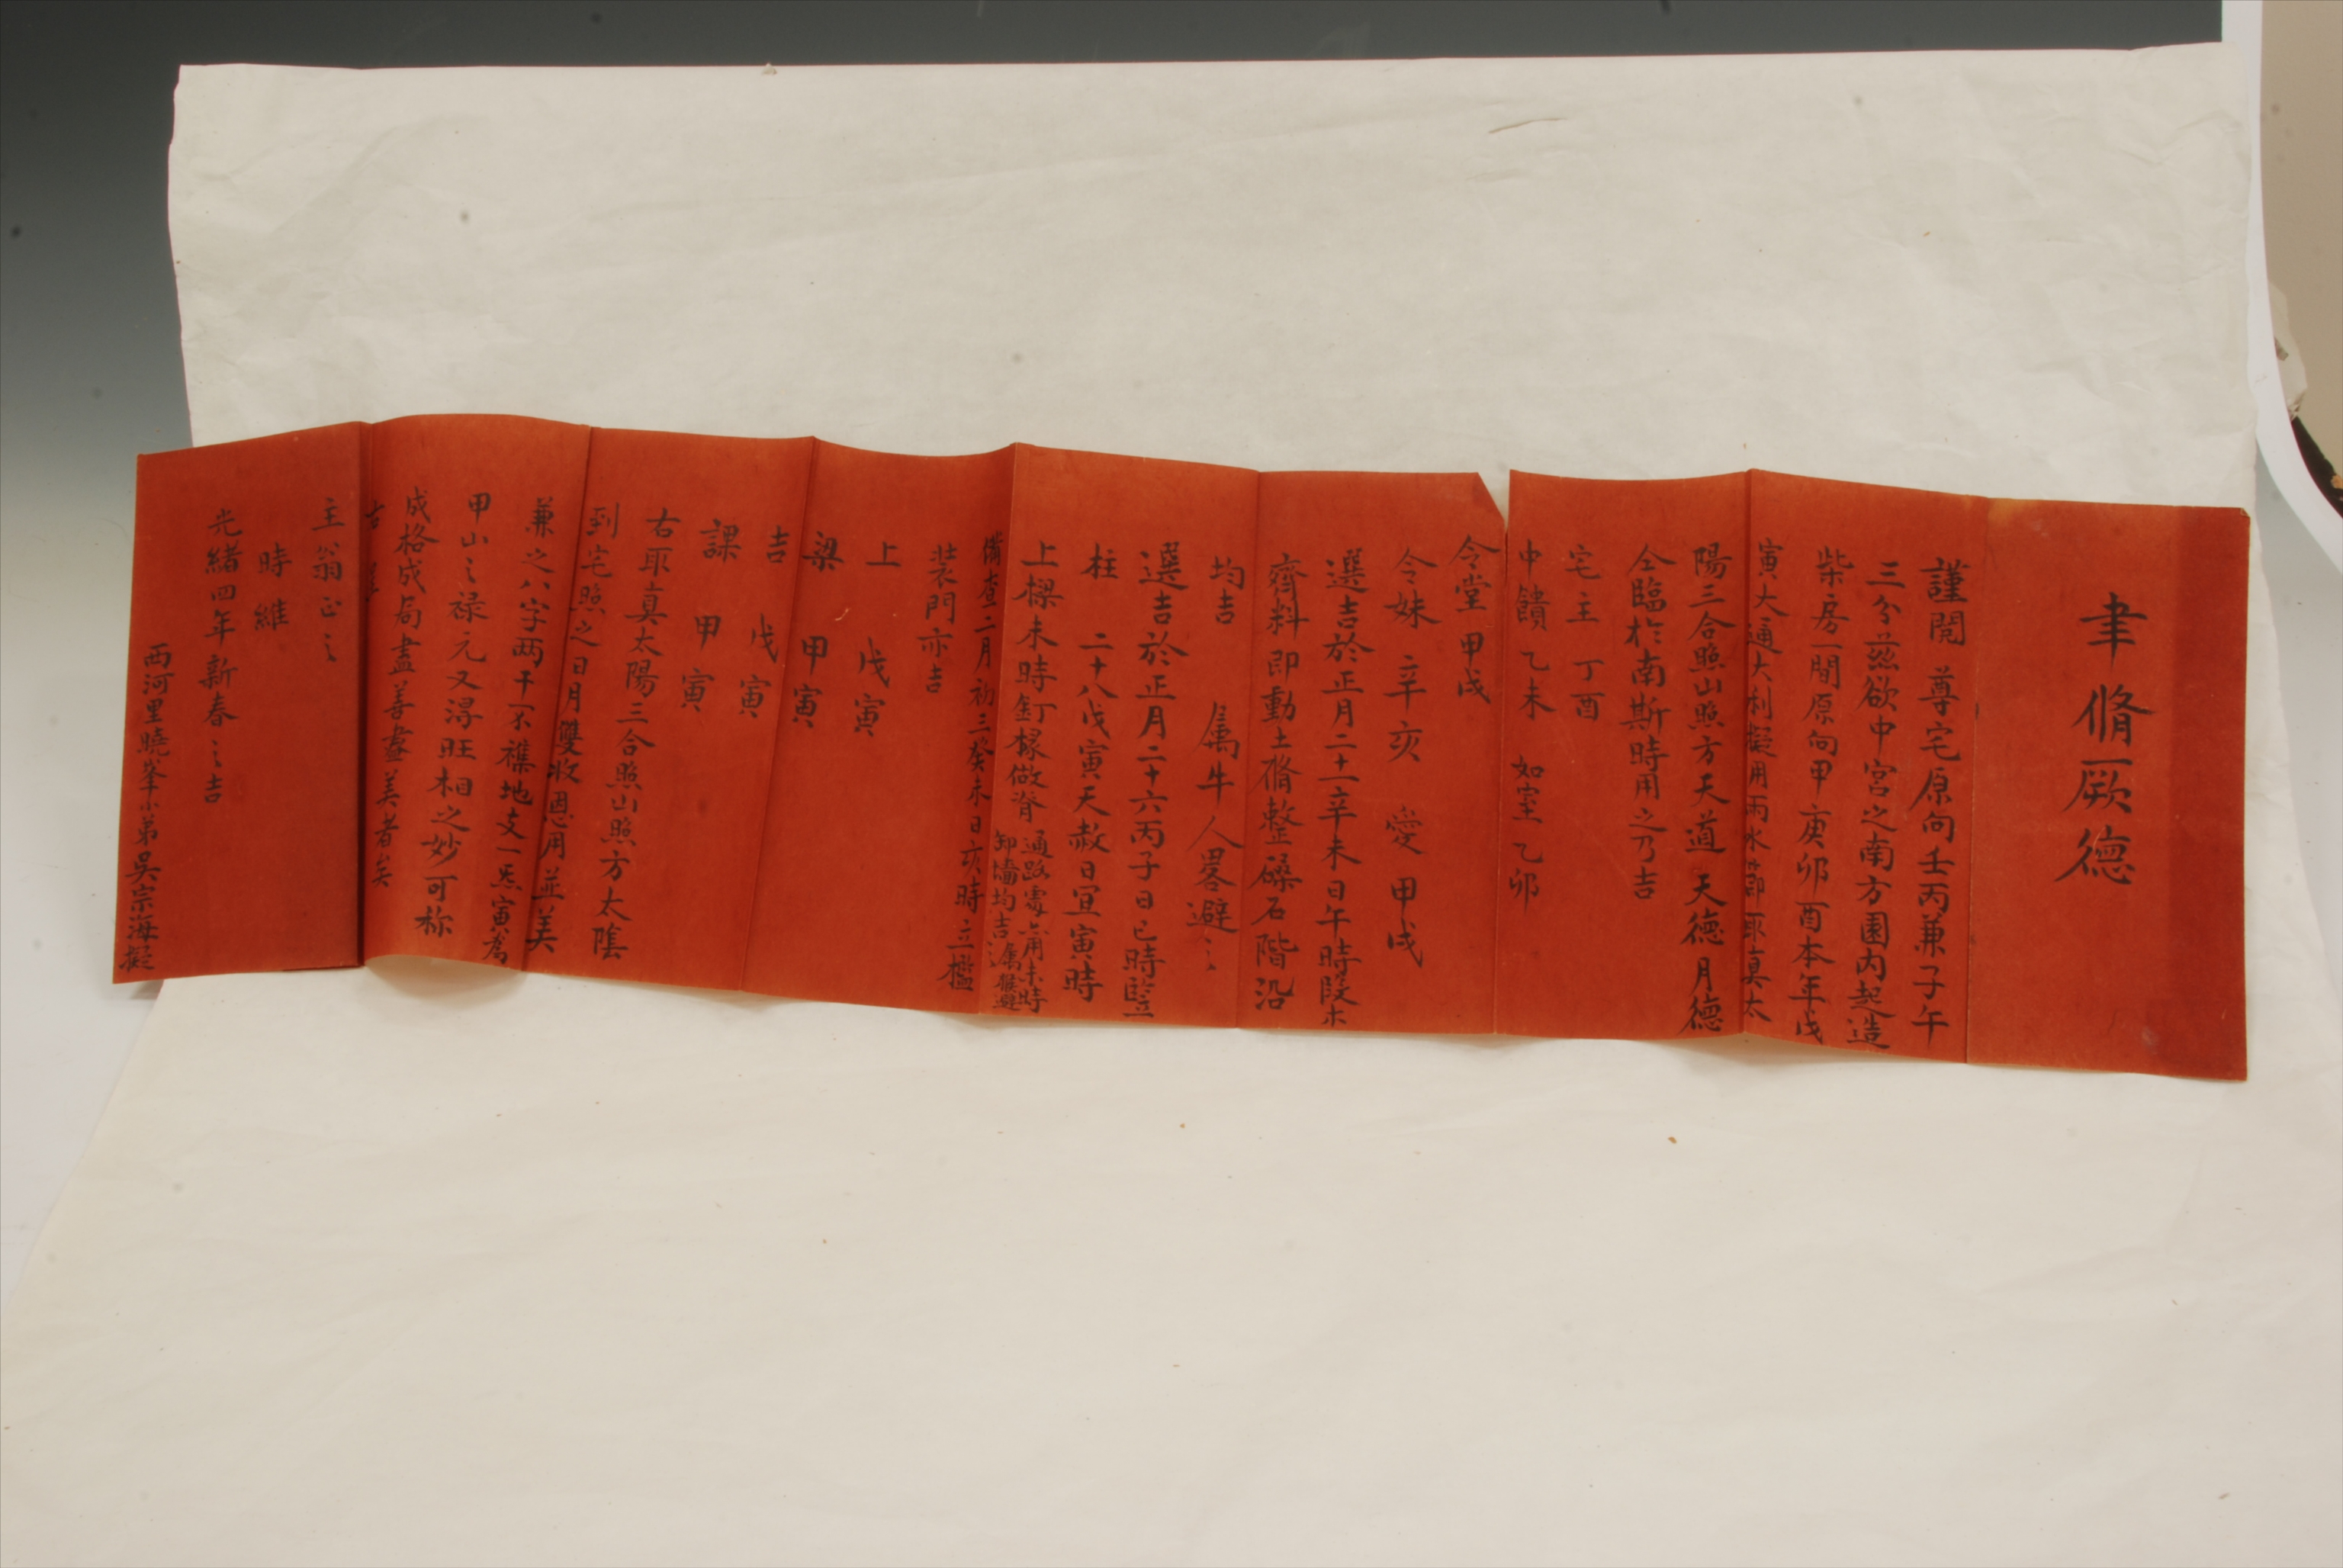 聿脩厥德
謹閱 尊宅原向壬丙兼子午
三分茲欲中宮之南方園內起造
柴房一間原向甲庚卯酉本年戊
寅大通大利擬用雨水節取真太
陽三合照山照方天道天德月德
仝臨於南斯時用之乃吉
宅主 丁酉
中饋 乙未 如室 乙卯
令堂 甲戌
令妹 辛亥 愛 甲戌
選吉於正月二十一辛未日午時段木
齊料即動土脩整磉石階沿
均吉 属牛人畧避之
選吉於正月二十六丙子日巳時竪
柱 二十八戊寅天赦日宜寅時
上樑未時釘椽做脊 通路要用未時
卸墻均吉 属猴避之
備查二月初三癸未日亥時立櫨
装門亦吉
上 戊寅
梁 甲寅
吉 戊寅
課 甲寅
右取真太陽三合照山照方太陰
到宅照之日月雙收恩用並美
兼之八字兩干不襍地支一炁寅為
甲山之禄元又淂旺相之妙可称
成格成局盡善盡美者矣
右
主翁正之
時維
光緒四年新春之吉
西河里曉峯小弟吳宗海擬